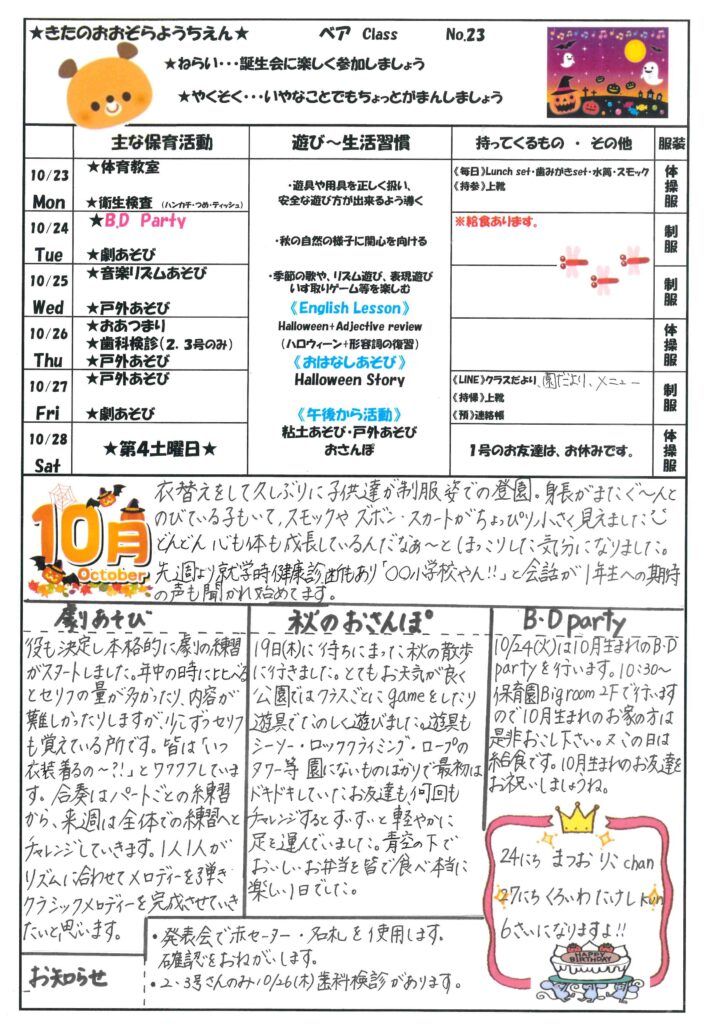 ★きたのおおぞらようちえん★ ベア Class No.23
★ねらい・・・誕生会に楽しく参加しましょう
★やくそく・・・いやなことでもちょっとがまんしましょう
主な保育活動 遊び～生活習慣 持ってくるもの ・ その他 服装
10/23 Mon
★体育教室
★衛生検査 (ハンカチ・つめ・ティッシュ)
・遊具や用具を正しく扱い、
安全な遊び方が出来るよう導く
《毎日》Lunch set・歯みがきset・水筒・スモック
《持参》上靴
体操服
10/24 Tue
★B.D Party
★劇あそび
・秋の自然の様子に関心を向ける
※給食あります。
制服
10/25 Wed
★音楽リズムあそび
★戸外あそび
・季節の歌や、リズム遊び、表現遊び
いす取りゲーム等を楽しむ
《English Lesson》
制服
10/26 Thu
★おあつまり
★歯科検診(2．3号のみ)
★戸外あそび
Halloween+Adjective review
(ハロウィーン+形容詞の復習)
《おはなしあそび》
体操服
10/27 Fri
★戸外あそび
★劇あそび
Halloween Story
《午後から活動》
《LINE》クラスだより、園だより、メニュー
《持帰》上靴
《預》連絡帳
制服
10/28 Sat
★第4土曜日★
粘土あそび・戸外あそび
おさんぽ
1号のお友達は、お休みです。
体操服
10月
October
衣替えをして久しぶりに子供達が制服姿での登園。身長がまたぐ～んと
のびている子もいて、スモックやズボン・スカートがちょっぴり小さく見えました
どんどん心も体も成長しているんだなぁ～とほっこりした気分になりました。
先週より就学時健康診断もあり「〇〇小学校やん!!」と会話が1年生への期待
の声も聞かれ始めてます。
劇あそび
役も決定し本格的に劇の練習
がスタートしました。年中の時に比べる
とセリフの量が多かったり、内容が
難しかったりしますが、少しずつセリフ
も覚えている所です。皆は「いつ
衣装着るの～?!」とワクワクしていま
す。合奏はパートごとの練習
から、来週は全体での練習へと
チャレンジしていきます。1人1人が
リズムに合わせてメロディーを弾き
クラシックメロディーを完成させていき
たいと思います。
秋のおさんぽ
19日(木)に待ちにまった秋の散歩
に行きました。とてもお天気が良く
公園ではクラスごとにgameをしたり
遊具でたのしく遊びました。遊具も
シーソー・ロッククライミング・ロープの
タワー等園にないものばかりで最初は
ドキドキしていたお友達も何回も
チャレンジするとすいすいと軽やかに
足を運んでいました。青空の下で
おいしいお弁当を皆で食べ本当に
楽しい1日でした。
B・D party
10/24(火)は10月生まれのB・D
partyを行います。10:30～
保育園Big room 2Fで行います
ので10月生まれのお家の方は
是非お越し下さい。又この日は
給食です。10月生まれのお友達を
お祝いしましょうね。
24にち まつお りい chan
27にち くろいわ たけし kun
6さいになりますよ!!
HAPPY BIRTHDAY
お知らせ
・発表会で赤セーター・名札を使用します。
確認をおねがいします。
・2・3号さんのみ10/26(木)歯科検診があります。